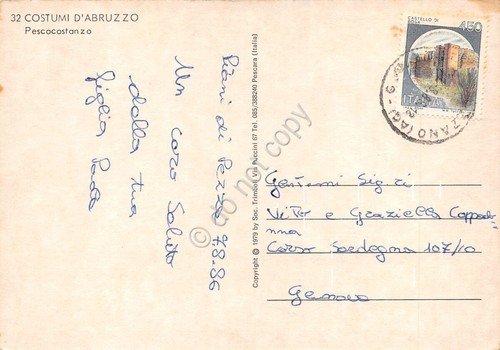 32 COSTUMI D'ABRUZZO
Pescocostanzo
Piani di Pezza 7.8.86
Un caro Saluto
dalla tua
figlia Paola
Copyright © 1979 by Soc. Trimboli Via Puccini 67 Tel. 085/388240 Pescara (Italia)
450
CASTELLO DI
ITALIA
ZANO (AQ)
Gent.mi Sig.ri
Vito e Graziella Cappad
nna
Corso Sardegna 107/10
Genova
do not copy